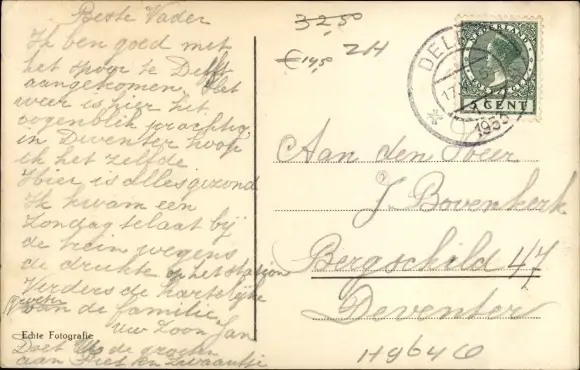 Beste Vader
Ik ben goed met
het spoor te Delft
aangekomen. Het
weer is hier het
oogenblik prachtig,
in Deventer hoop
ik het zelfde
Hier is alles gezond
Ik kwam een
Zondag te laat bij
de trein wegens
de drukte op het station
Verders de hartelijke
groeten van de familie
Uw Zoon Jan
Doet de groeten
aan Piet en
Echte Fotografie
32,50
€14,50
2H
DELFT
17
1933
NEDERLAND
5 CENT
Aan den Heer
J. Bovenkerk
Bergschild 47
Deventer
H9646